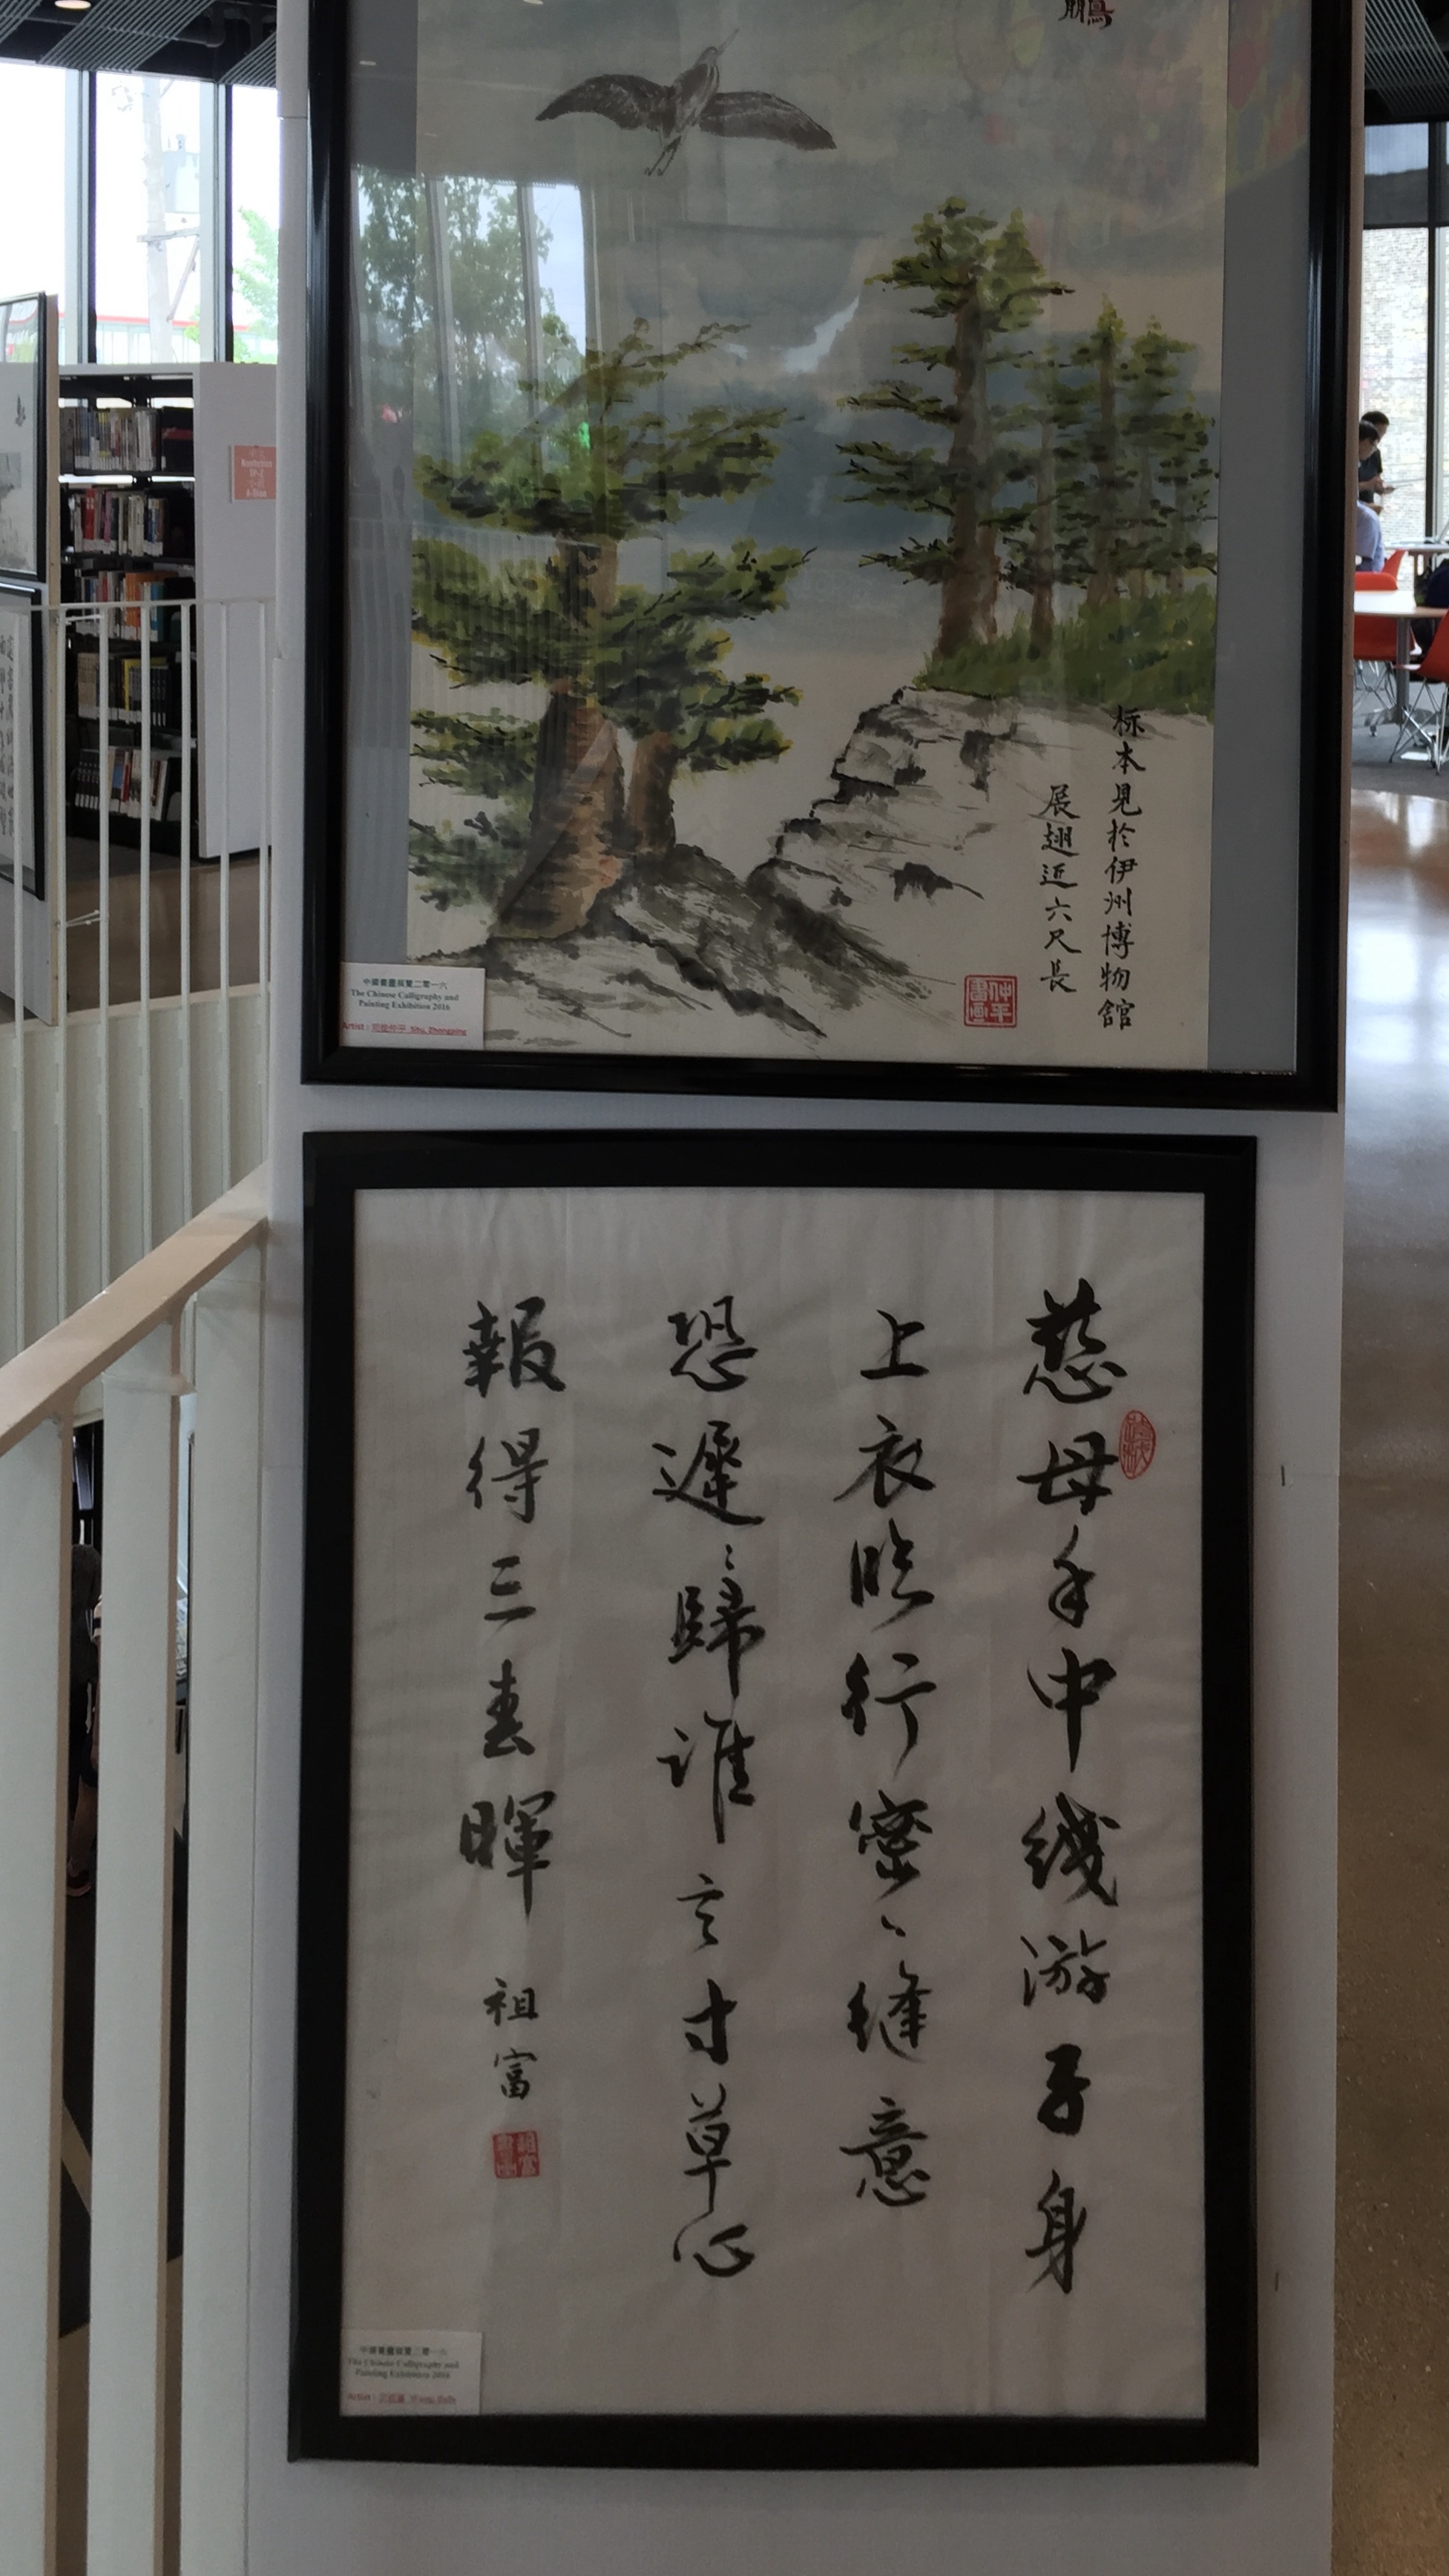 鵬
标本見於伊州博物館
展翅近六尺長
仲平書画
中國書畫展覽二零一六
The Chinese Calligraphy and
Painting Exhibition 2016
Artist : 司徒仲平 Situ, Zhongping
慈母手中线游子身
上衣临行密〻缝意
恐遲〻歸谁言寸草心
報得三春暉
祖富
中國書畫展覽二零一六
The Chinese Calligraphy and
Painting Exhibition 2016
Artist :
Nonfiction